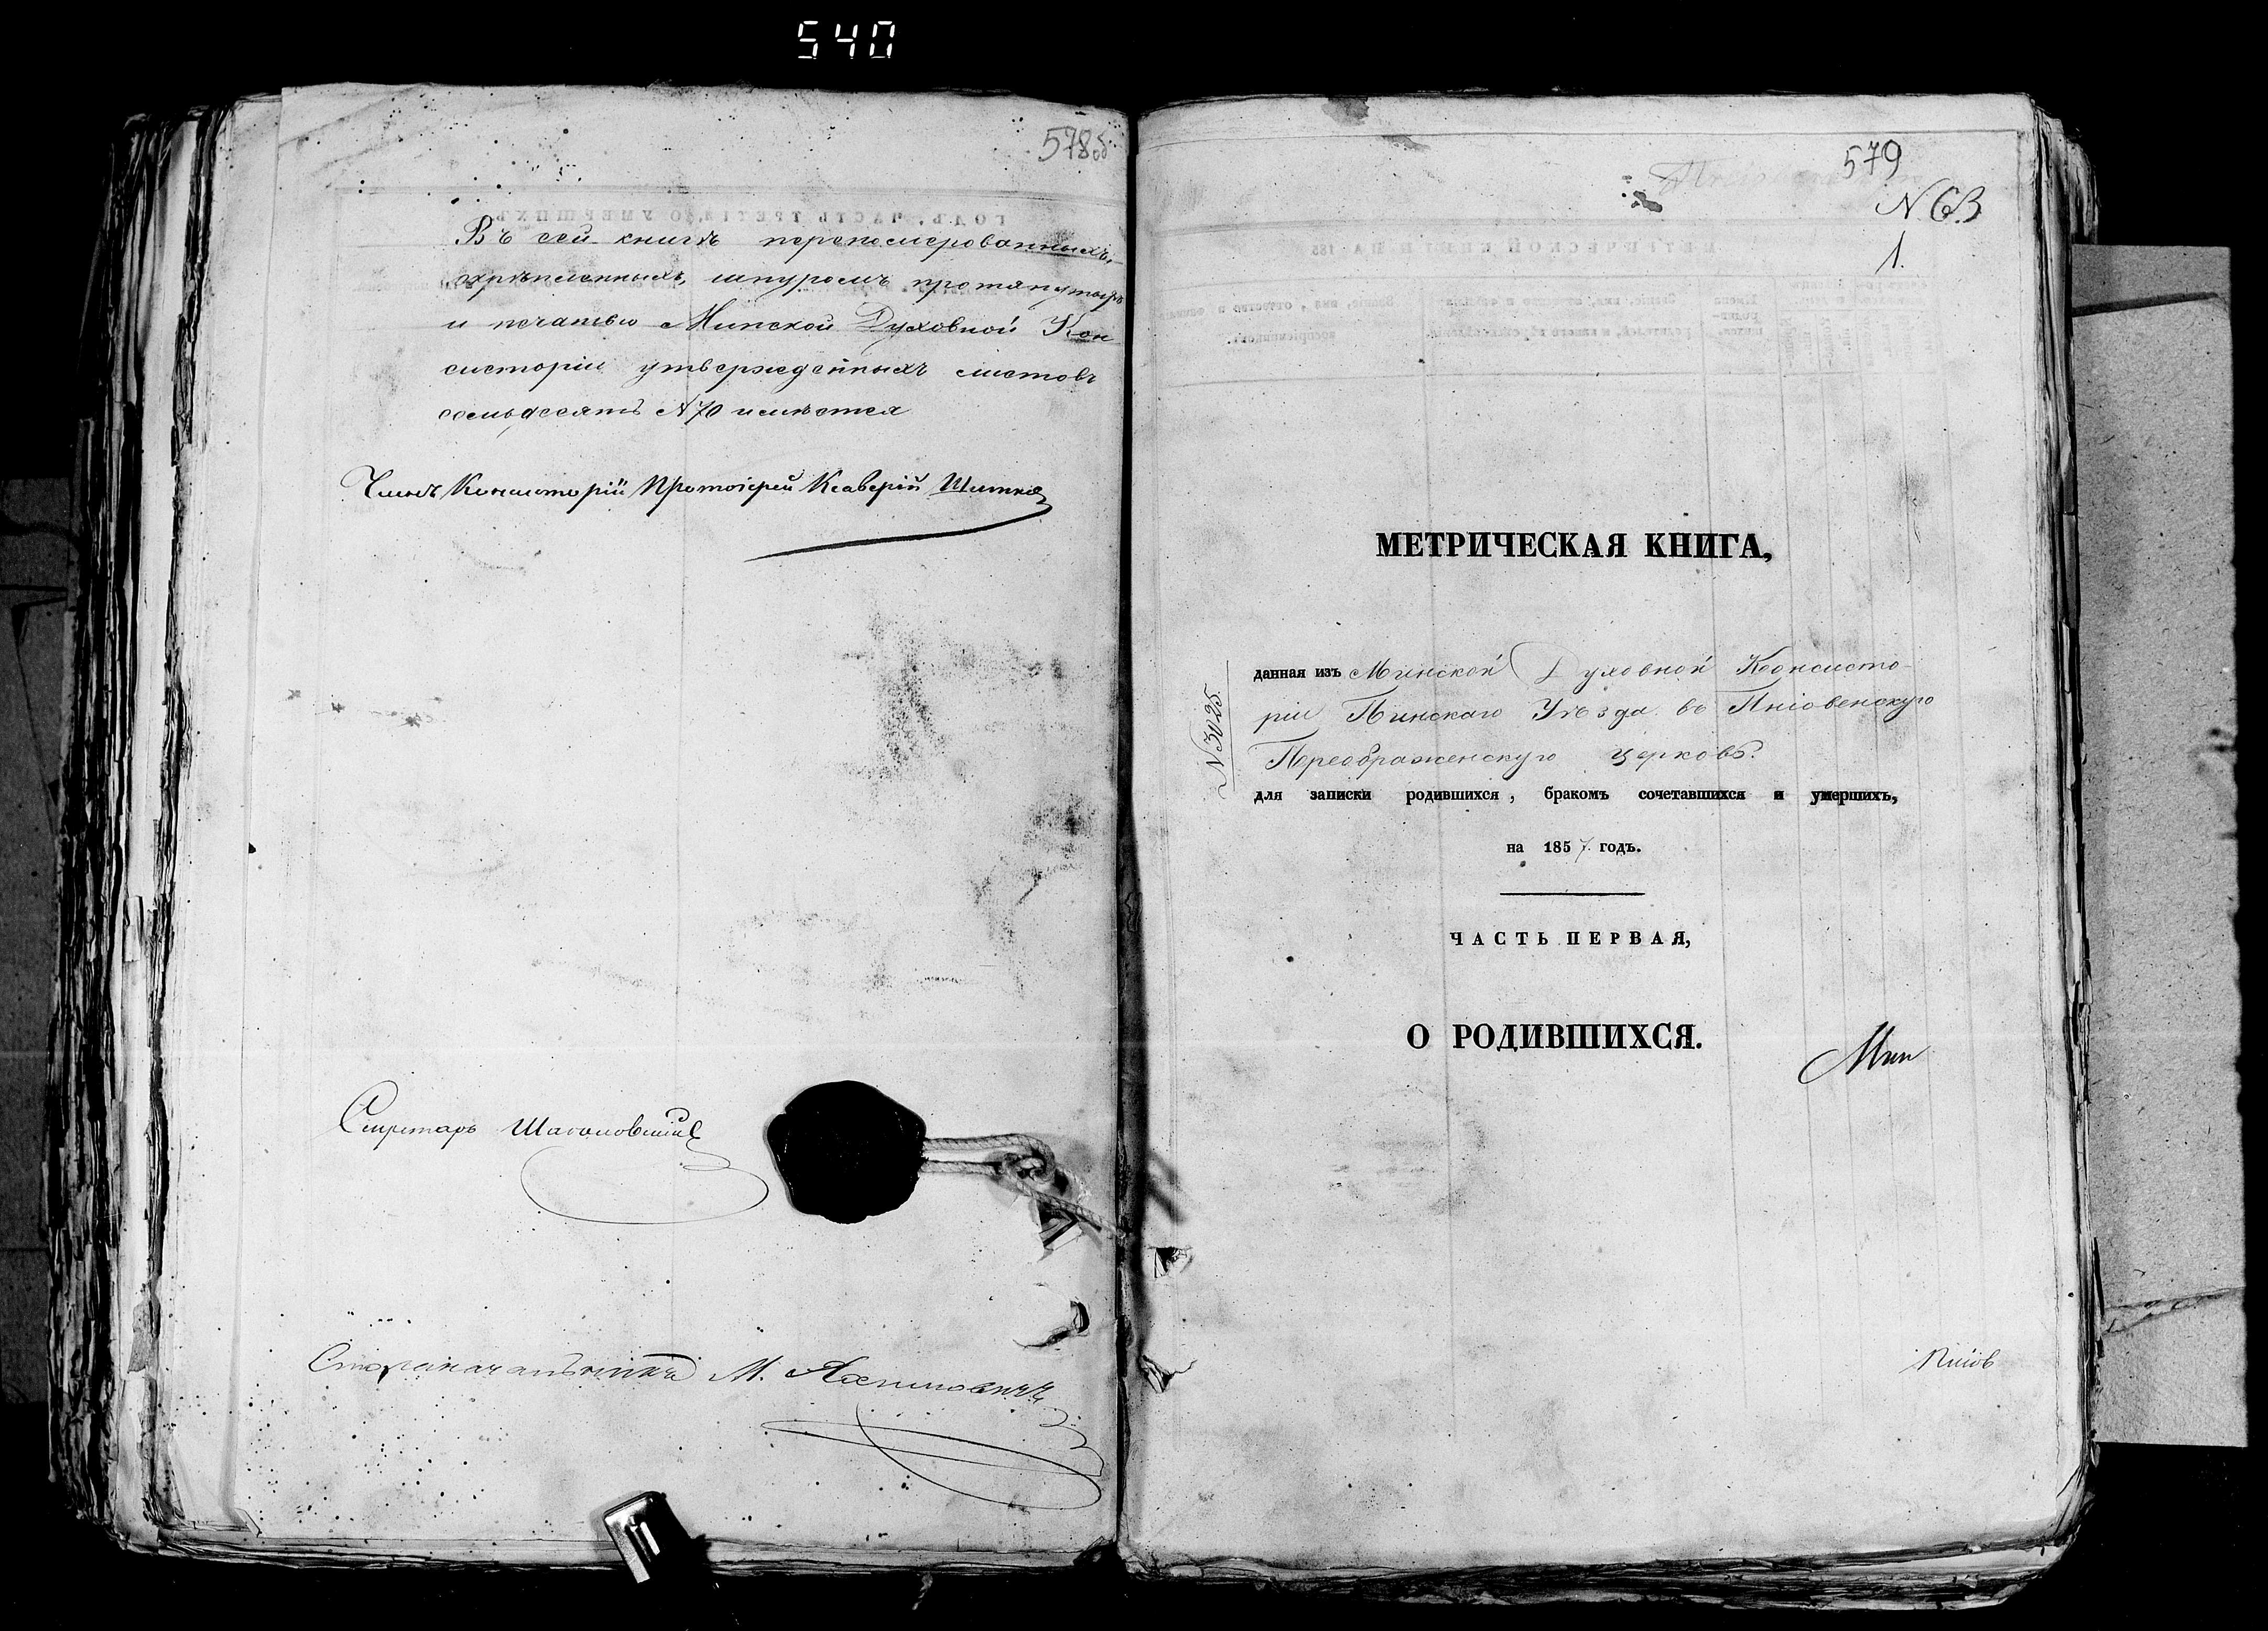 540
578об
Въ сей книгѣ перенумерованныхъ,
скрѣпленныхъ, шнуромъ протянутыхъ
и печатью Минской Духовной Кон
систоріи утвержденныхъ листовъ
семьдесятъ N70 имѣется
Членъ Консисторіи Протоіерей Ксаверій
Секретарь
Столоначальникъ М.
579
N 63
1.
МЕТРИЧЕСКАЯ КНИГА,
N 3025.
данная изъ Минской Духовной Консисто-
ріи Пинскаго Уѣзда въ Пніовенскую
Преображенскую церковь.
для записки родившихся, бракомъ сочетавшихся и умершихъ,
на 1857 годъ.
ЧАСТЬ ПЕРВАЯ,
О РОДИВШИХСЯ.
Мин
Пніов